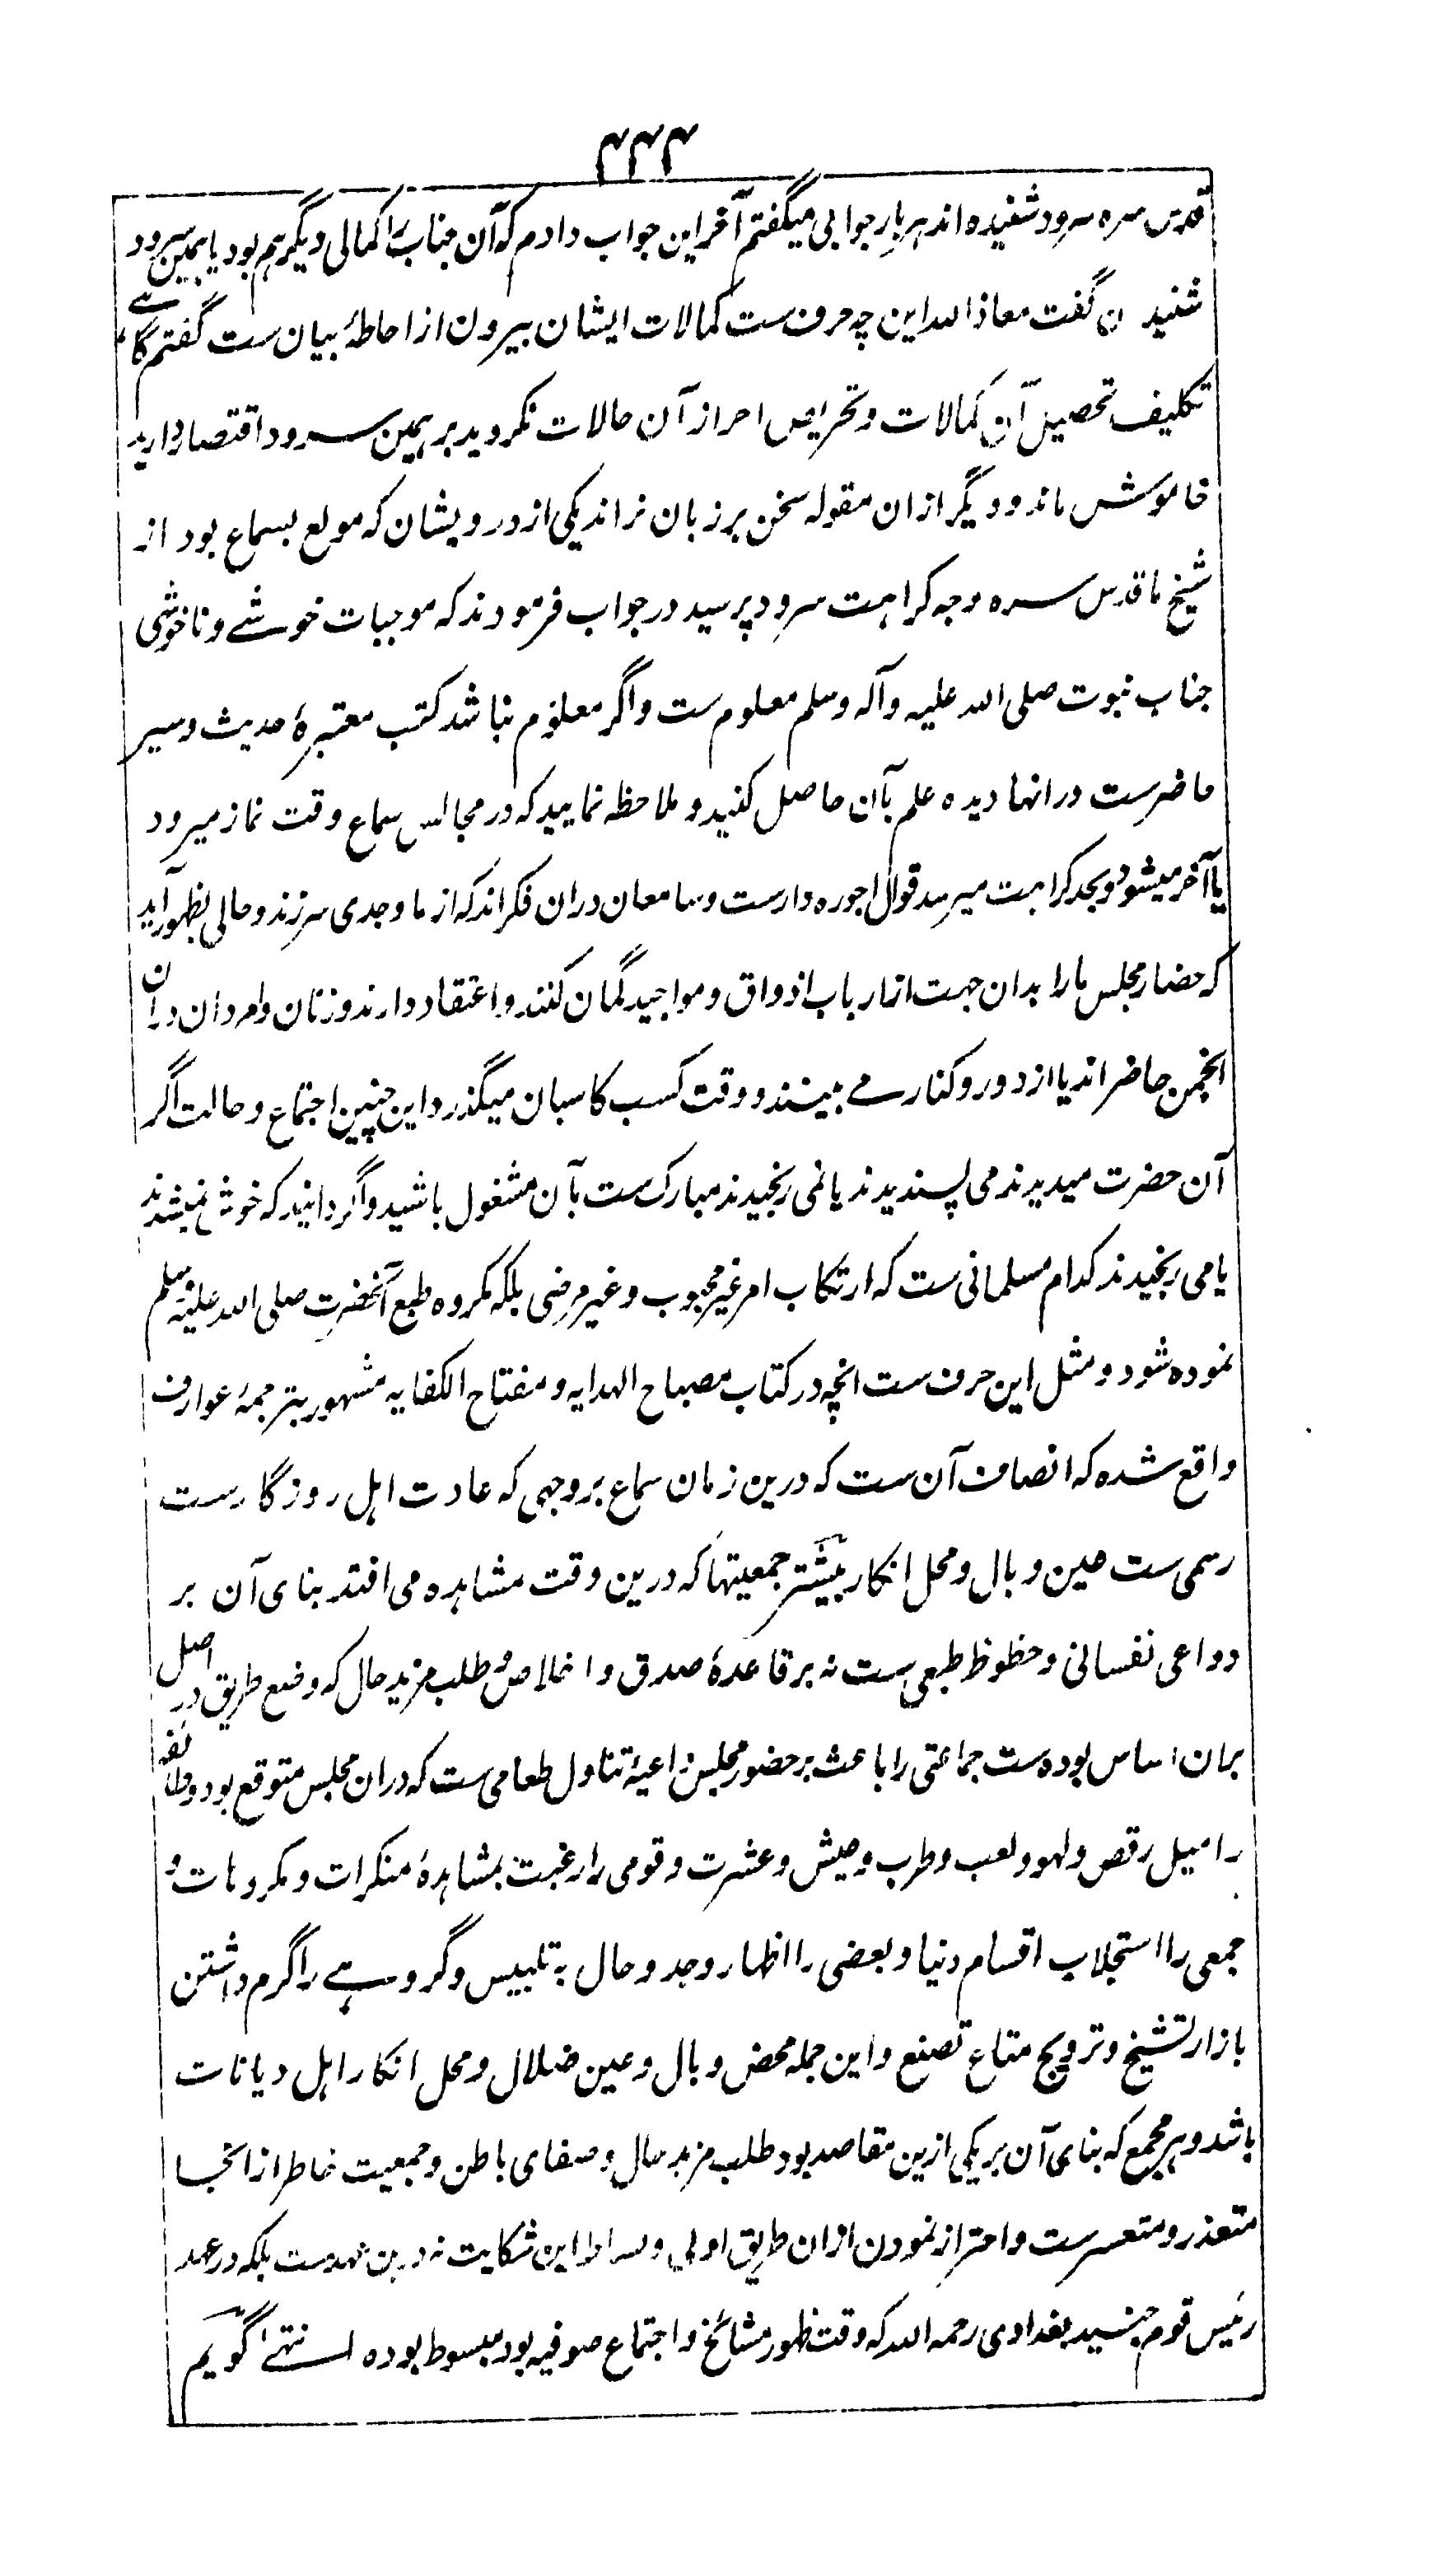 ۴۴۴
قدس سره سرود شنیده اند هر بار جوابی میگفتم آخر این جواب دادم که آن جناب را کمالی دیگر هم بود یا همین سرود
شنیدن گفت معاذ الله این چه حرف ست کمالات ایشان بیرون از احاطۀ بیان ست گفتم گاہے
تکلیف تحصیل آن کمالات و تحریص احراز آن حالات نکردید بر همین سرود اقتصار دارید
خاموش ماند و دیگر ازان مقوله سخن بر زبان نراند یکی از درویشان که مولع بسماع بود از
شیخ ما قدس سره وجه کراہت سرود پرسید در جواب فرمودند که موجبات خوشے و ناخوشی
جناب نبوت صلی الله علیه وآله وسلم معلوم ست و اگر معلوم نباشد کتب معتبرۀ حدیث و سیر
حاضرست در انها دیده علم بآن حاصل کنید و ملاحظه نمایید که در مجالس سماع وقت نماز میرود
یا آخر میشود و بحد کراہت میرسد قوال اجوره دارست و سامعان دران فکر اند که از ما وجدی سر زند و حالی بظهور آید
که حضار مجلس ما را بدان جهت از ارباب اذواق و مواجید گمان کنند و اعتقاد دارند و زنان و امردان دران
انجمن حاضر اند یا از دور و کنار مے بینند و وقت کسب کاسبان میگذرد این چنین اجتماع و حالت اگر
آن حضرت میدیدند می پسندیدند یا نمی رنجیدند مبارک ست بآن مشغول باشید و اگر دانید که خوش نمیشدند
یا می رنجیدند کدام مسلمانی ست که ارتکاب امر غیر محبوب و غیر مرضی بلکه مکروه طبع آنحضرت صلی الله علیه وسلم
نموده شود و مثل این حرف ست انچه در کتاب مصباح الهدایه و مفتاح الکفایه مشهور بترجمۀ عوارف
واقع شده که انصاف آن ست که درین زمان سماع بر وجهی که عادت اهل روزگارست
رسمی ست عین وبال و محل انکار بیشتر جمعیتها که درین وقت مشاهده می افتد بنای آن بر
دواعی نفسانی و حظوظ طبعی ست نه بر قاعدۀ صدق و اخلاص و طلب مزید حال که وضع طریق در اصل
بران اساس بوده ست جماعتی را باعث بر حضور مجلس داعیۀ تناول طعامی ست که دران مجلس متوقع بود و طائفه
را میل رقص و لهو و لعب و طرب و عیش و عشرت و قومی را رغبت بمشاهدۀ منکرات و مکروهات و
جمعی را استجلاب اقسام دنیا و بعضی را اظهار وجد و حال به تلبیس و گروہے را گرم داشتن
بازار تشیخ و ترویج متاع تصنع و این جمله محض وبال و عین ضلال و محل انکار اهل دیانات
باشد و هر مجمع که بنای آن بر یکی ازین مقاصد بود طلب مزید حال و صفای باطن و جمعیت خاطر از انجا
متعذر و متعسرست و احتراز نمودن ازان طریق اولی و بساط این شکایت نه درین عهدست بلکه در عهد
رئیس قوم جنید بغدادی رحمه الله که وقت ظهور مشائخ و اجتماع صوفیه بود مبسوط بوده انتهے گویم